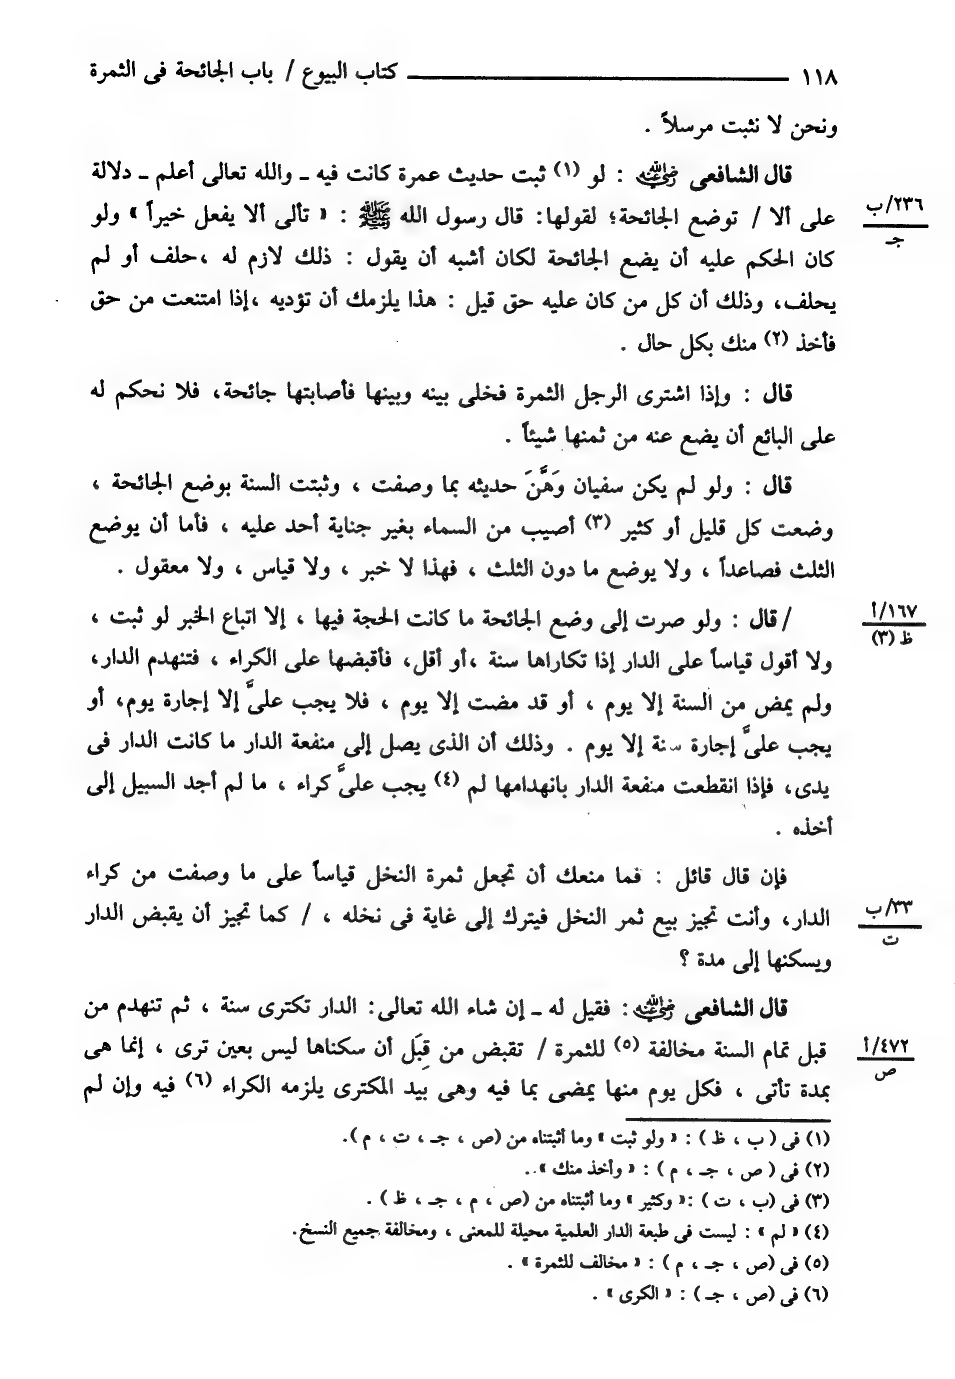 ١١٨ ــــــــــــــــــــــــ كتاب البيوع / باب الجائحة فى الثمرة
ونحن لا نثبت مرسلاً .
قال الشافعى رضي الله عنه : لو (١) ثبت حديث عمرة كانت فيه ـ والله تعالى أعلم ـ دلالة
على ألا / توضع الجائحة؛ لقولها: قال رسول الله ﷺ : « تألى ألا يفعل خيراً » ولو
٢٣٦/ب
جـ
كان الحكم عليه أن يضع الجائحة لكان أشبه أن يقول : ذلك لازم له ،حلف أو لم
يحلف، وذلك أن كل من كان عليه حق قيل : هذا يلزمك أن تؤديه ،إذا امتنعت من حق
فأخذ (٢) منك بكل حال .
قال : وإذا اشترى الرجل الثمرة فخلى بينه وبينها فأصابتها جائحة، فلا نحكم له
على البائع أن يضع عنه من ثمنها شيئاً .
قال : ولو لم يكن سفيان وَهَّنَ حديثه بما وصفت ، وثبتت السنة بوضع الجائحة ،
وضعت كل قليل أو كثير (٣) أصيب من السماء بغير جناية أحد عليه ، فأما أن يوضع
الثلث فصاعداً ، ولا يوضع ما دون الثلث ، فهذا لا خبر ، ولا قياس ، ولا معقول .
/ قال : ولو صرت إلى وضع الجائحة ما كانت الحجة فيها ، إلا اتباع الخبر لو ثبت ،
١٦٧/أ
ظ (٣)
ولا أقول قياساً على الدار إذا تكاراها سنة ،أو أقل، فأقبضها على الكراء ، فتنهدم الدار،
ولم يمض من السنة إلا يوم ، أو قد مضت إلا يوم ، فلا يجب علىَّ إلا إجارة يوم، أو
يجب علىَّ إجارة سنة إلا يوم . وذلك أن الذى يصل إلى منفعة الدار ما كانت الدار فى
يدى، فإذا انقطعت منفعة الدار بانهدامها لم (٤) يجب علىَّ كراء ، ما لم أجد السبيل إلى
أخذه .
فإن قال قائل : فما منعك أن تجعل ثمرة النخل قياساً على ما وصفت من كراء
الدار، وأنت تجيز بيع ثمر النخل فيترك إلى غاية فى نخله ، / كما تجيز أن يقبض الدار
٣٣/ب
ت
ويسكنها إلى مدة ؟
قال الشافعى رضي الله عنه : فقيل له ـ إن شاء الله تعالى: الدار تكترى سنة ، ثم تنهدم من
قبل تمام السنة مخالفة (٥) للثمرة / تقبض من قِبَل أن سكناها ليس بعين ترى ، إنما هى
٤٧٢/أ
ص
بمدة تأتى ، فكل يوم منها يمضى بما فيه وهى بيد المكترى يلزمه الكراء (٦) فيه وإن لم
(١) فى ( ب ، ظ ) : « ولو ثبت » وما أثبتناه من (ص ، جـ ، ت ، م ).
(٢) فى ( ص ، جـ ، م ) : « وأخذ منك » .
(٣) فى (ب ، ت ) :« وكثير » وما أثبتناه من (ص ، م ، جـ ، ظ ) .
(٤) « لم » : ليست فى طبعة الدار العلمية محيلة للمعنى ، ومخالفة جميع النسخ.
(٥) فى (ص ، جـ ، م ) : « مخالف للثمرة » .
(٦) فى (ص ، جـ ) : « الكرى » .